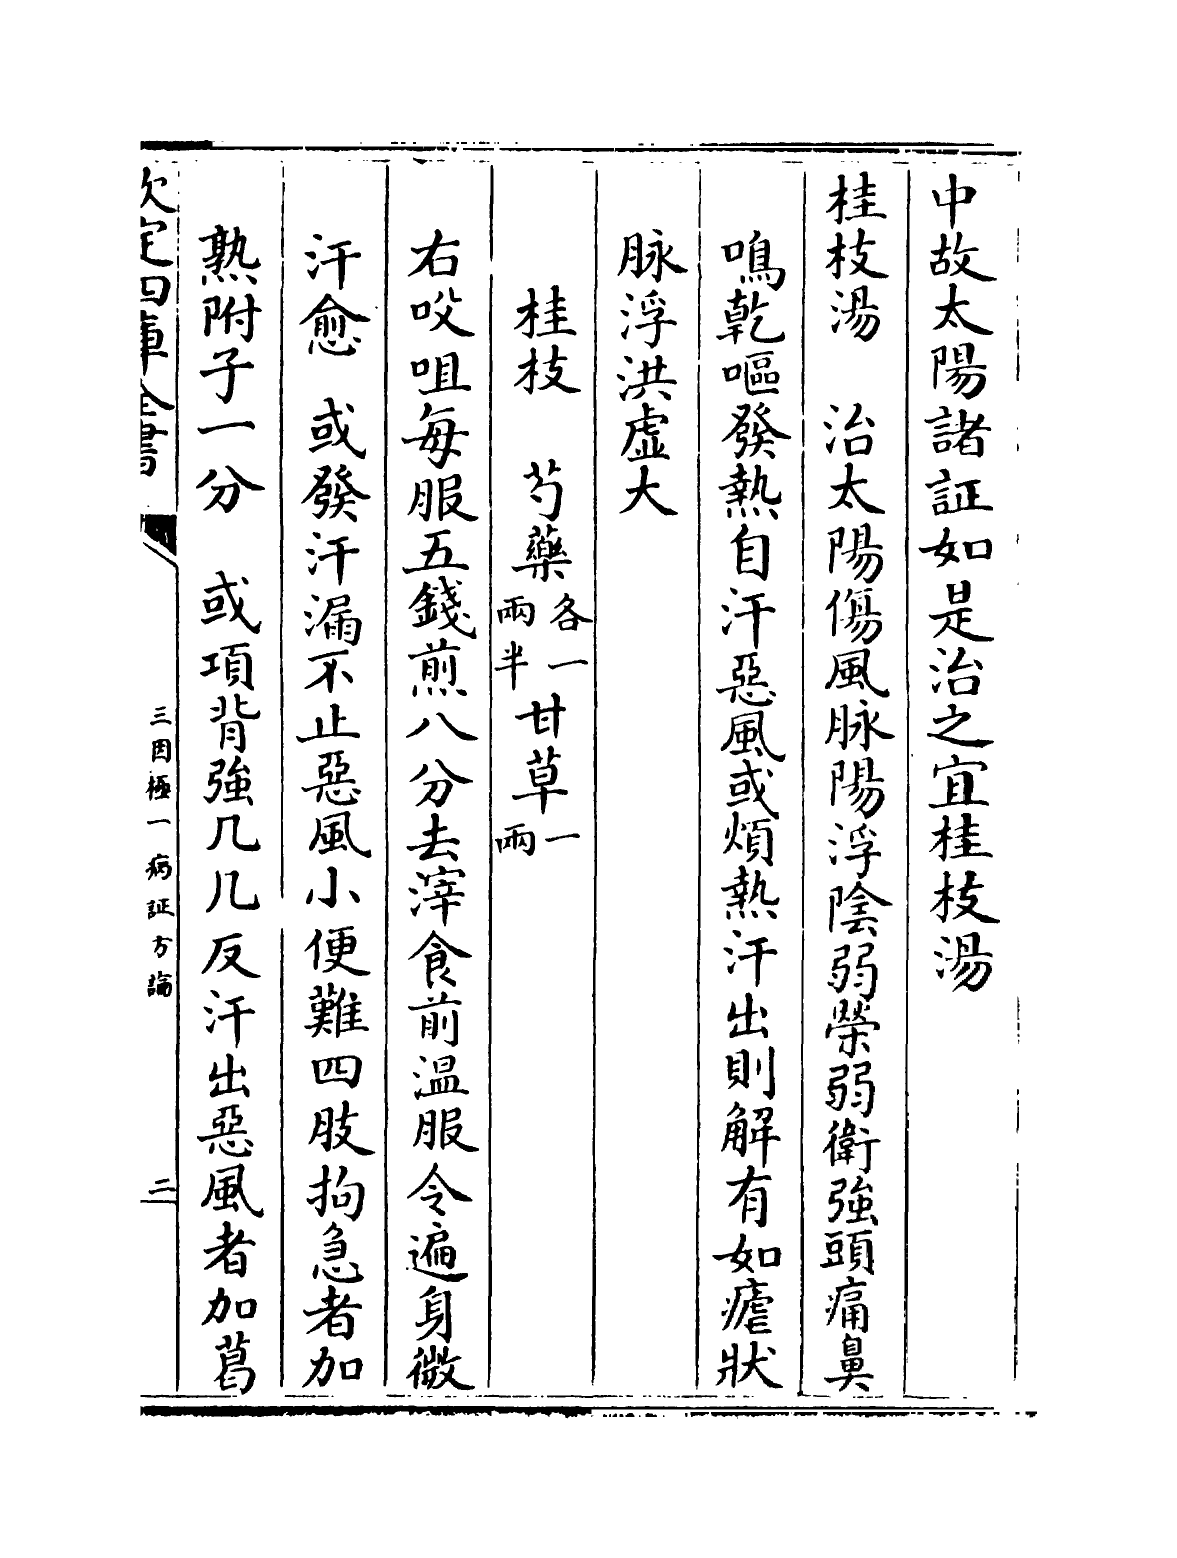 中故太陽諸証如是治之宜桂枝湯
桂枝湯　治太陽傷風脉陽浮陰弱榮弱衛強頭痛鼻
鳴乾嘔發熱自汗惡風或煩熱汗出則解有如瘧狀
脉浮洪虛大
桂枝　芍藥各一兩半甘草一兩
右㕮咀每服五錢煎八分去滓食前溫服令遍身微
汗愈　或發汗漏不止惡風小便難四肢拘急者加
熟附子一分　或項背強几几反汗出惡風者加葛
欽定四庫全書
三因極一病証方論
二